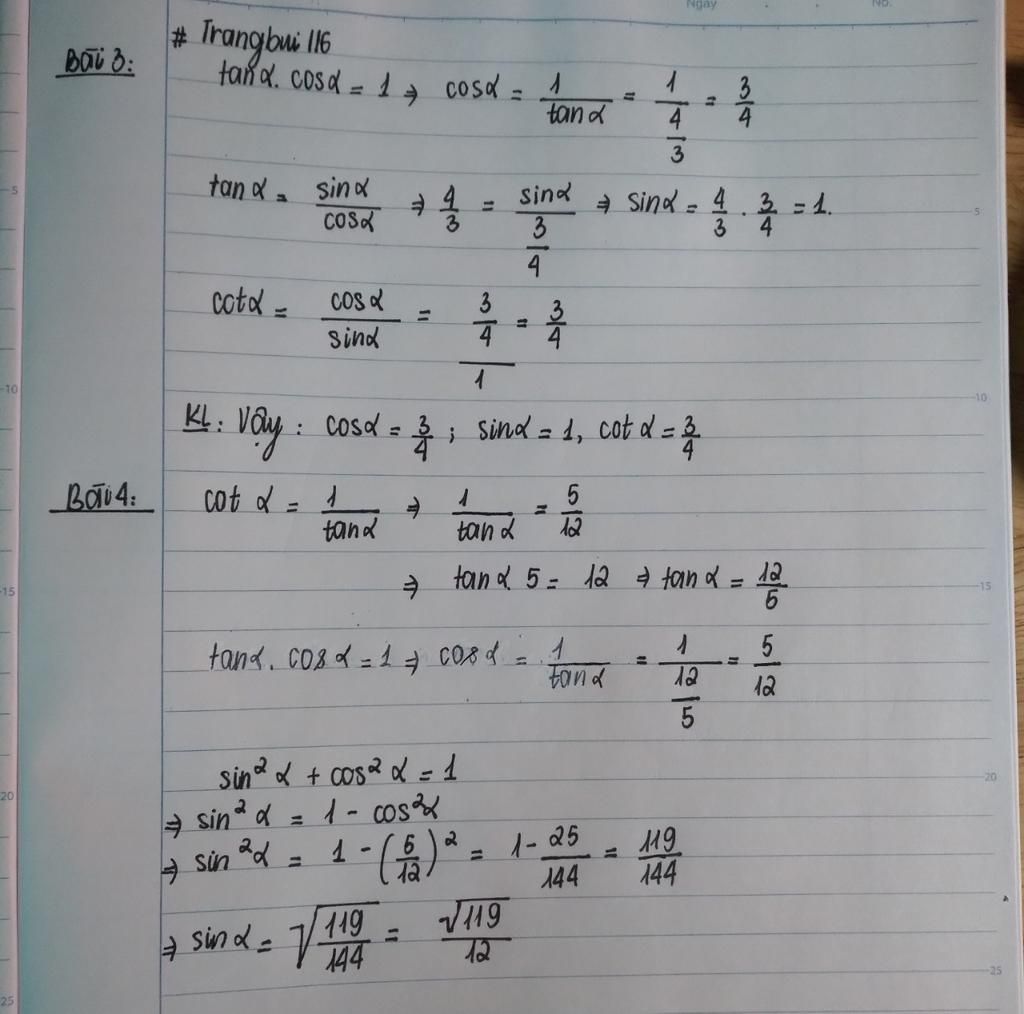 Ngày No.
# Trangbui 116
Bài 3:
tanα. cosα = 1 ⇒ cosα = 1/tanα = 1/(4/3) = 3/4
tanα = sinα/cosα ⇒ 4/3 = sinα/(3/4) ⇒ sinα = 4/3 . 3/4 = 1.
cotα = cosα/sinα = (3/4)/1 = 3/4
KL: Vậy: cosα = 3/4 ; sinα = 1, cotα = 3/4
Bài 4:
cot α = 1/tanα ⇒ 1/tanα = 5/12
⇒ tanα. 5 = 12 ⇒ tanα = 12/5
tanα. cosα = 1 ⇒ cosα = 1/tanα = 1/(12/5) = 5/12
sin² α + cos² α = 1
⇒ sin² α = 1 - cos²α
⇒ sin²α = 1 - (5/12)² = 1 - 25/144 = 119/144
⇒ sinα = √(119/144) = √119/12
5
10
15
20
25
5
10
15
20
25